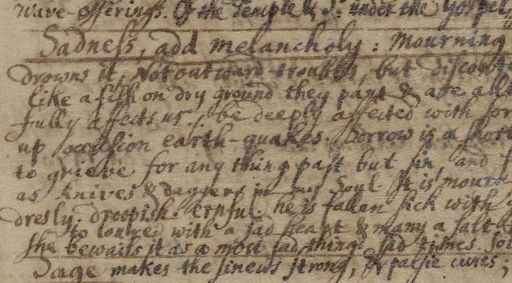 Wave-offerings. Of the Temple & S. under the Gospel
Sadness, add melancholy: Mourning
Drowns it, Not outward troubles, but discont
like a fish on dry ground they pant & are all
fully affects us, be deeply affected with sor
up occasion earth-quakes. Sorrow is a
to grieve for any thing past but sin and
as knives & daggers in my Soul It is mourn
dresly. droopish. erpful. he is fallen sick with
so loured with a sad heart & many a salt
She bewails it as a most sad thing. sad times.
Sage makes the sinews strong, & palsie cures;